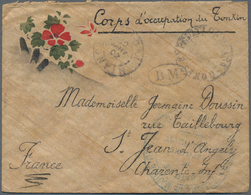 Corps d'occupation du Tonkin
B M
Mademoiselle Germaine Doussin
rue Taillebourg
St Jean d'Angely
France
Charente-Infre